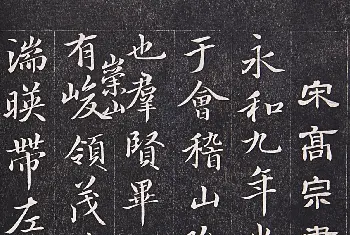 宋高宗書
永和九年
于會稽山
也羣賢畢
有崇山峻領茂
湍暎帶左